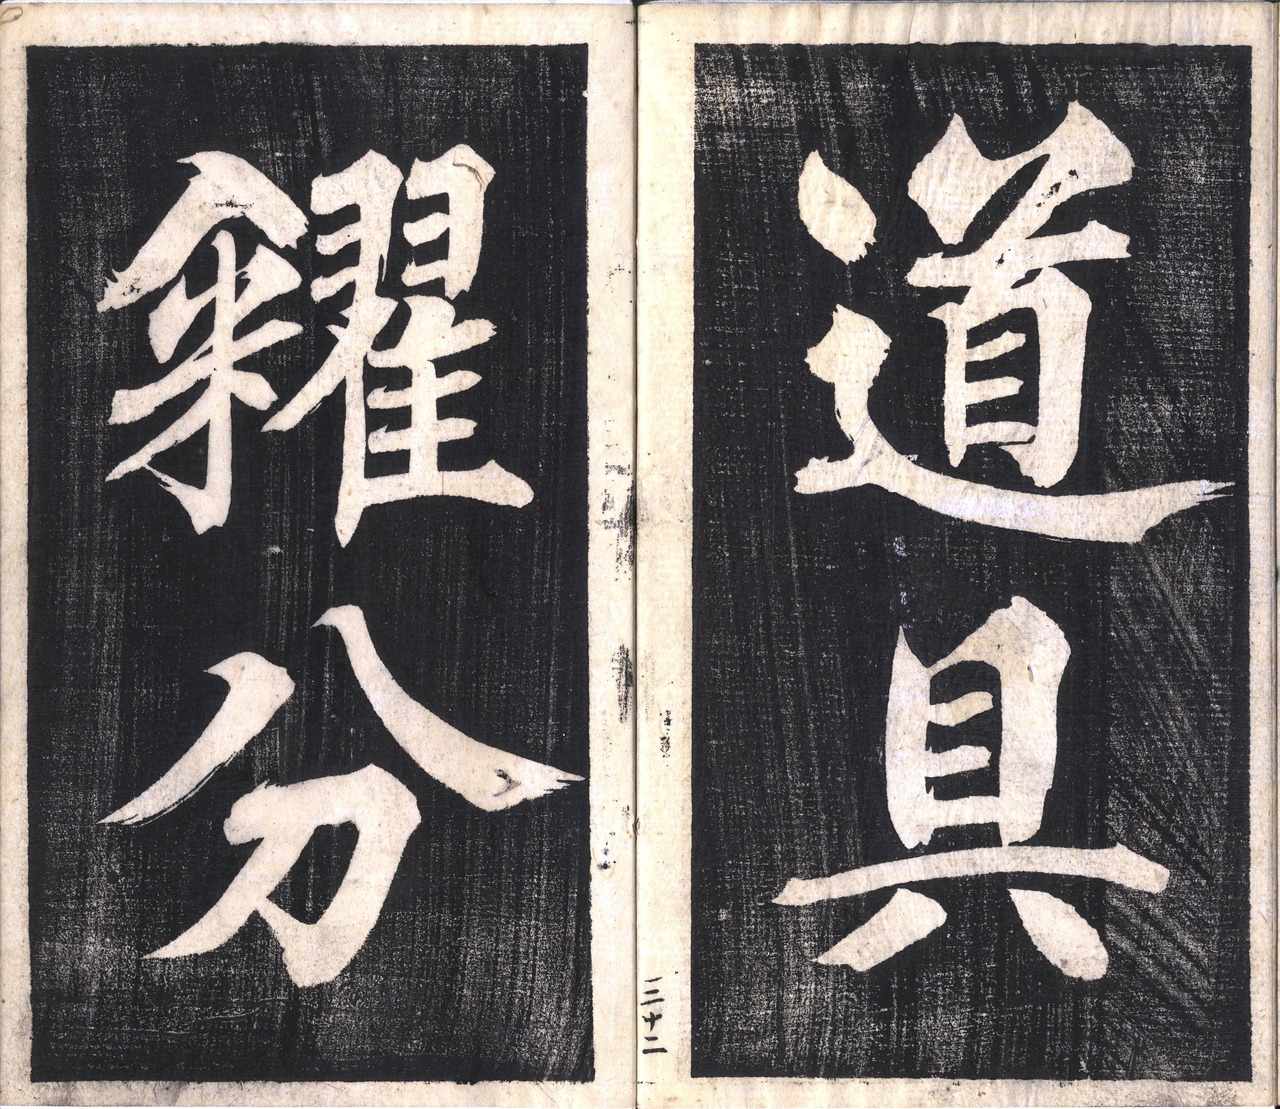 道具
糴分
三十二